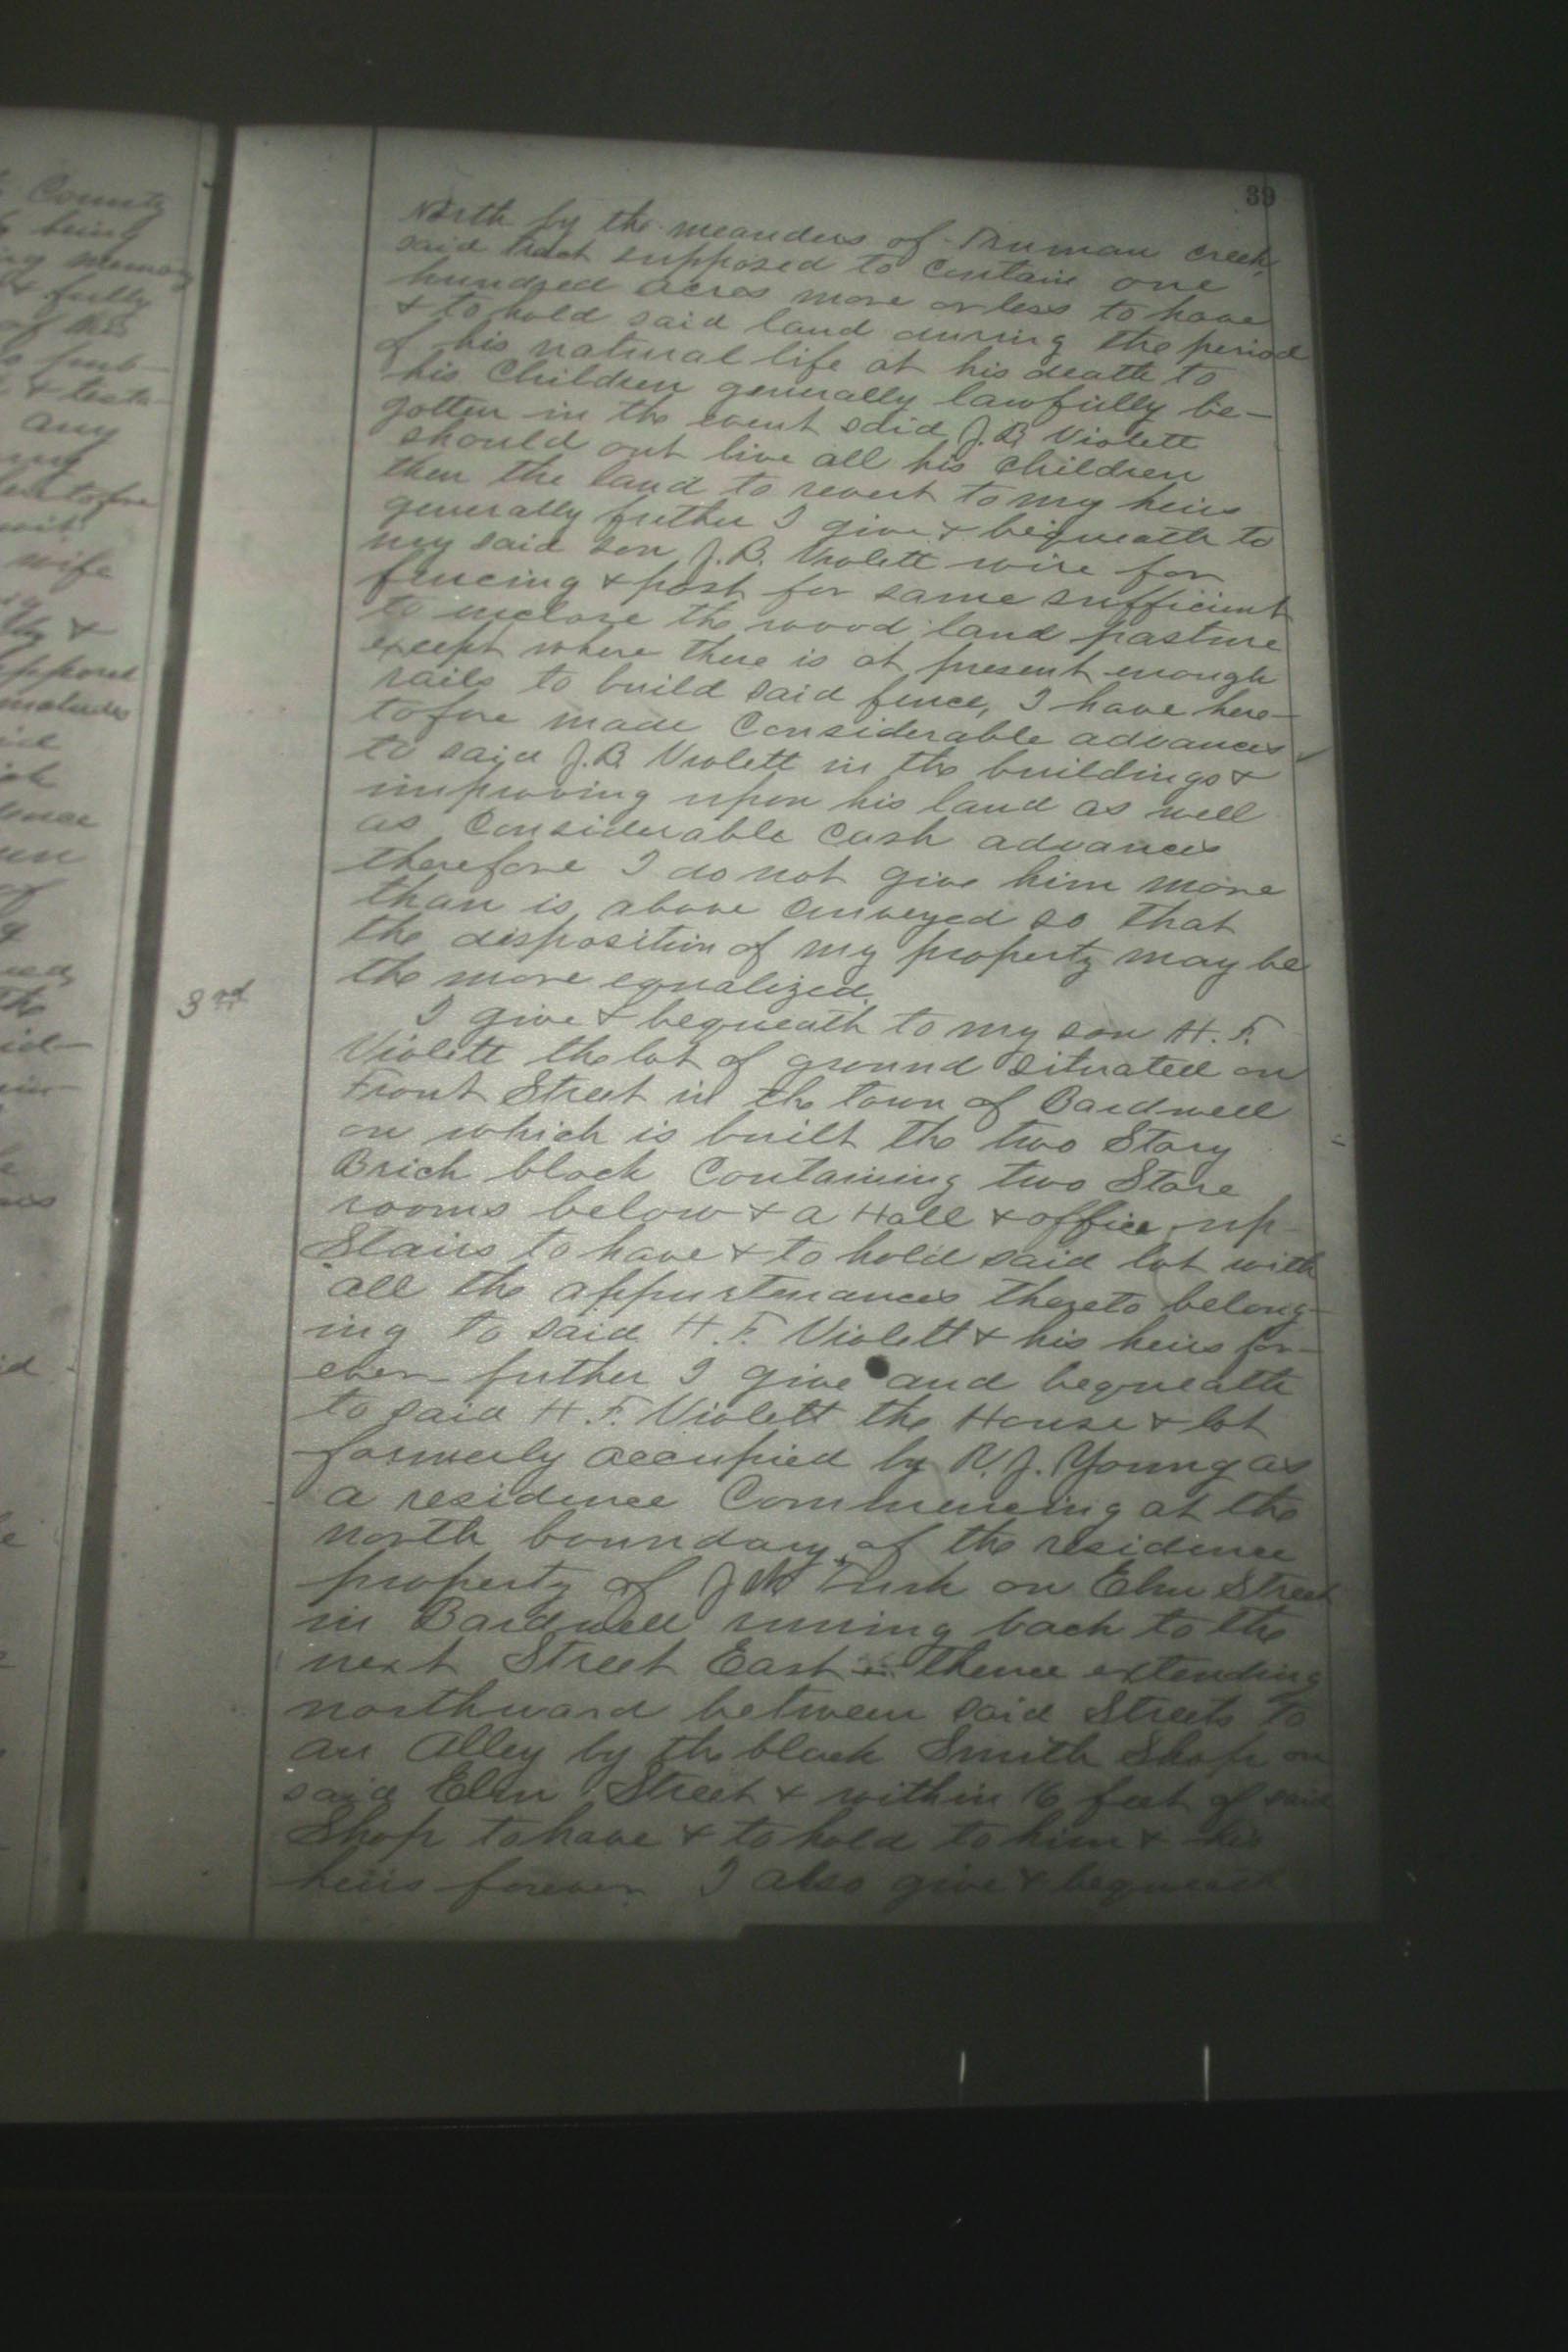 County
being
memory
& fully
of this
pub-
& testa-
any
my
wife
39
North by the meanders of Truman Creek,
said tract supposed to Contain one
hundred acres more or less to have
& to hold said land during the period
of his natural life at his death to
his Children generally lawfully be-
gotten in the event said J.B. Violett
should out live all his Children
then the land to revert to my heirs
generally futher I give & bequeath to
my said son J.B. Violett wire for
fencing & post for same sufficient
to inclose the wood land pasture
except where there is at present enough
rails to build said fence, I have here-
tofore made Considerable advances
to said J.B. Violett in the buildings &
improving upon his land as well
as Considerable Cash advances
therefore I do not give him more
than is above Conveyed so that
the disposition of my property may be
the more equalized.
3rd
I give & bequeath to my son H. F.
Violett the lot of ground situated on
Front Street in the town of Bardwell
on which is built the two Story
Brick block Containing two Store
rooms below & a Hall & office up
Stairs to have & to hold said lot with
all the appurtenances thereto belong-
ing to said H. F. Violett & his heirs for-
ever futher I give and bequeath
to said H. F. Violett the House & lot
formerly occupied by R. J. Young as
a residence Commencing at the
north boundary of the residence
property of Turk on Elm Street
in Bardwell runing back to the
next Street East thence extending
northward between said Streets to
an Alley by the black Smith Shop on
said Elm Street & within 16 feet of said
Shop to have & to hold to him & his
heirs forever I also give & bequeath